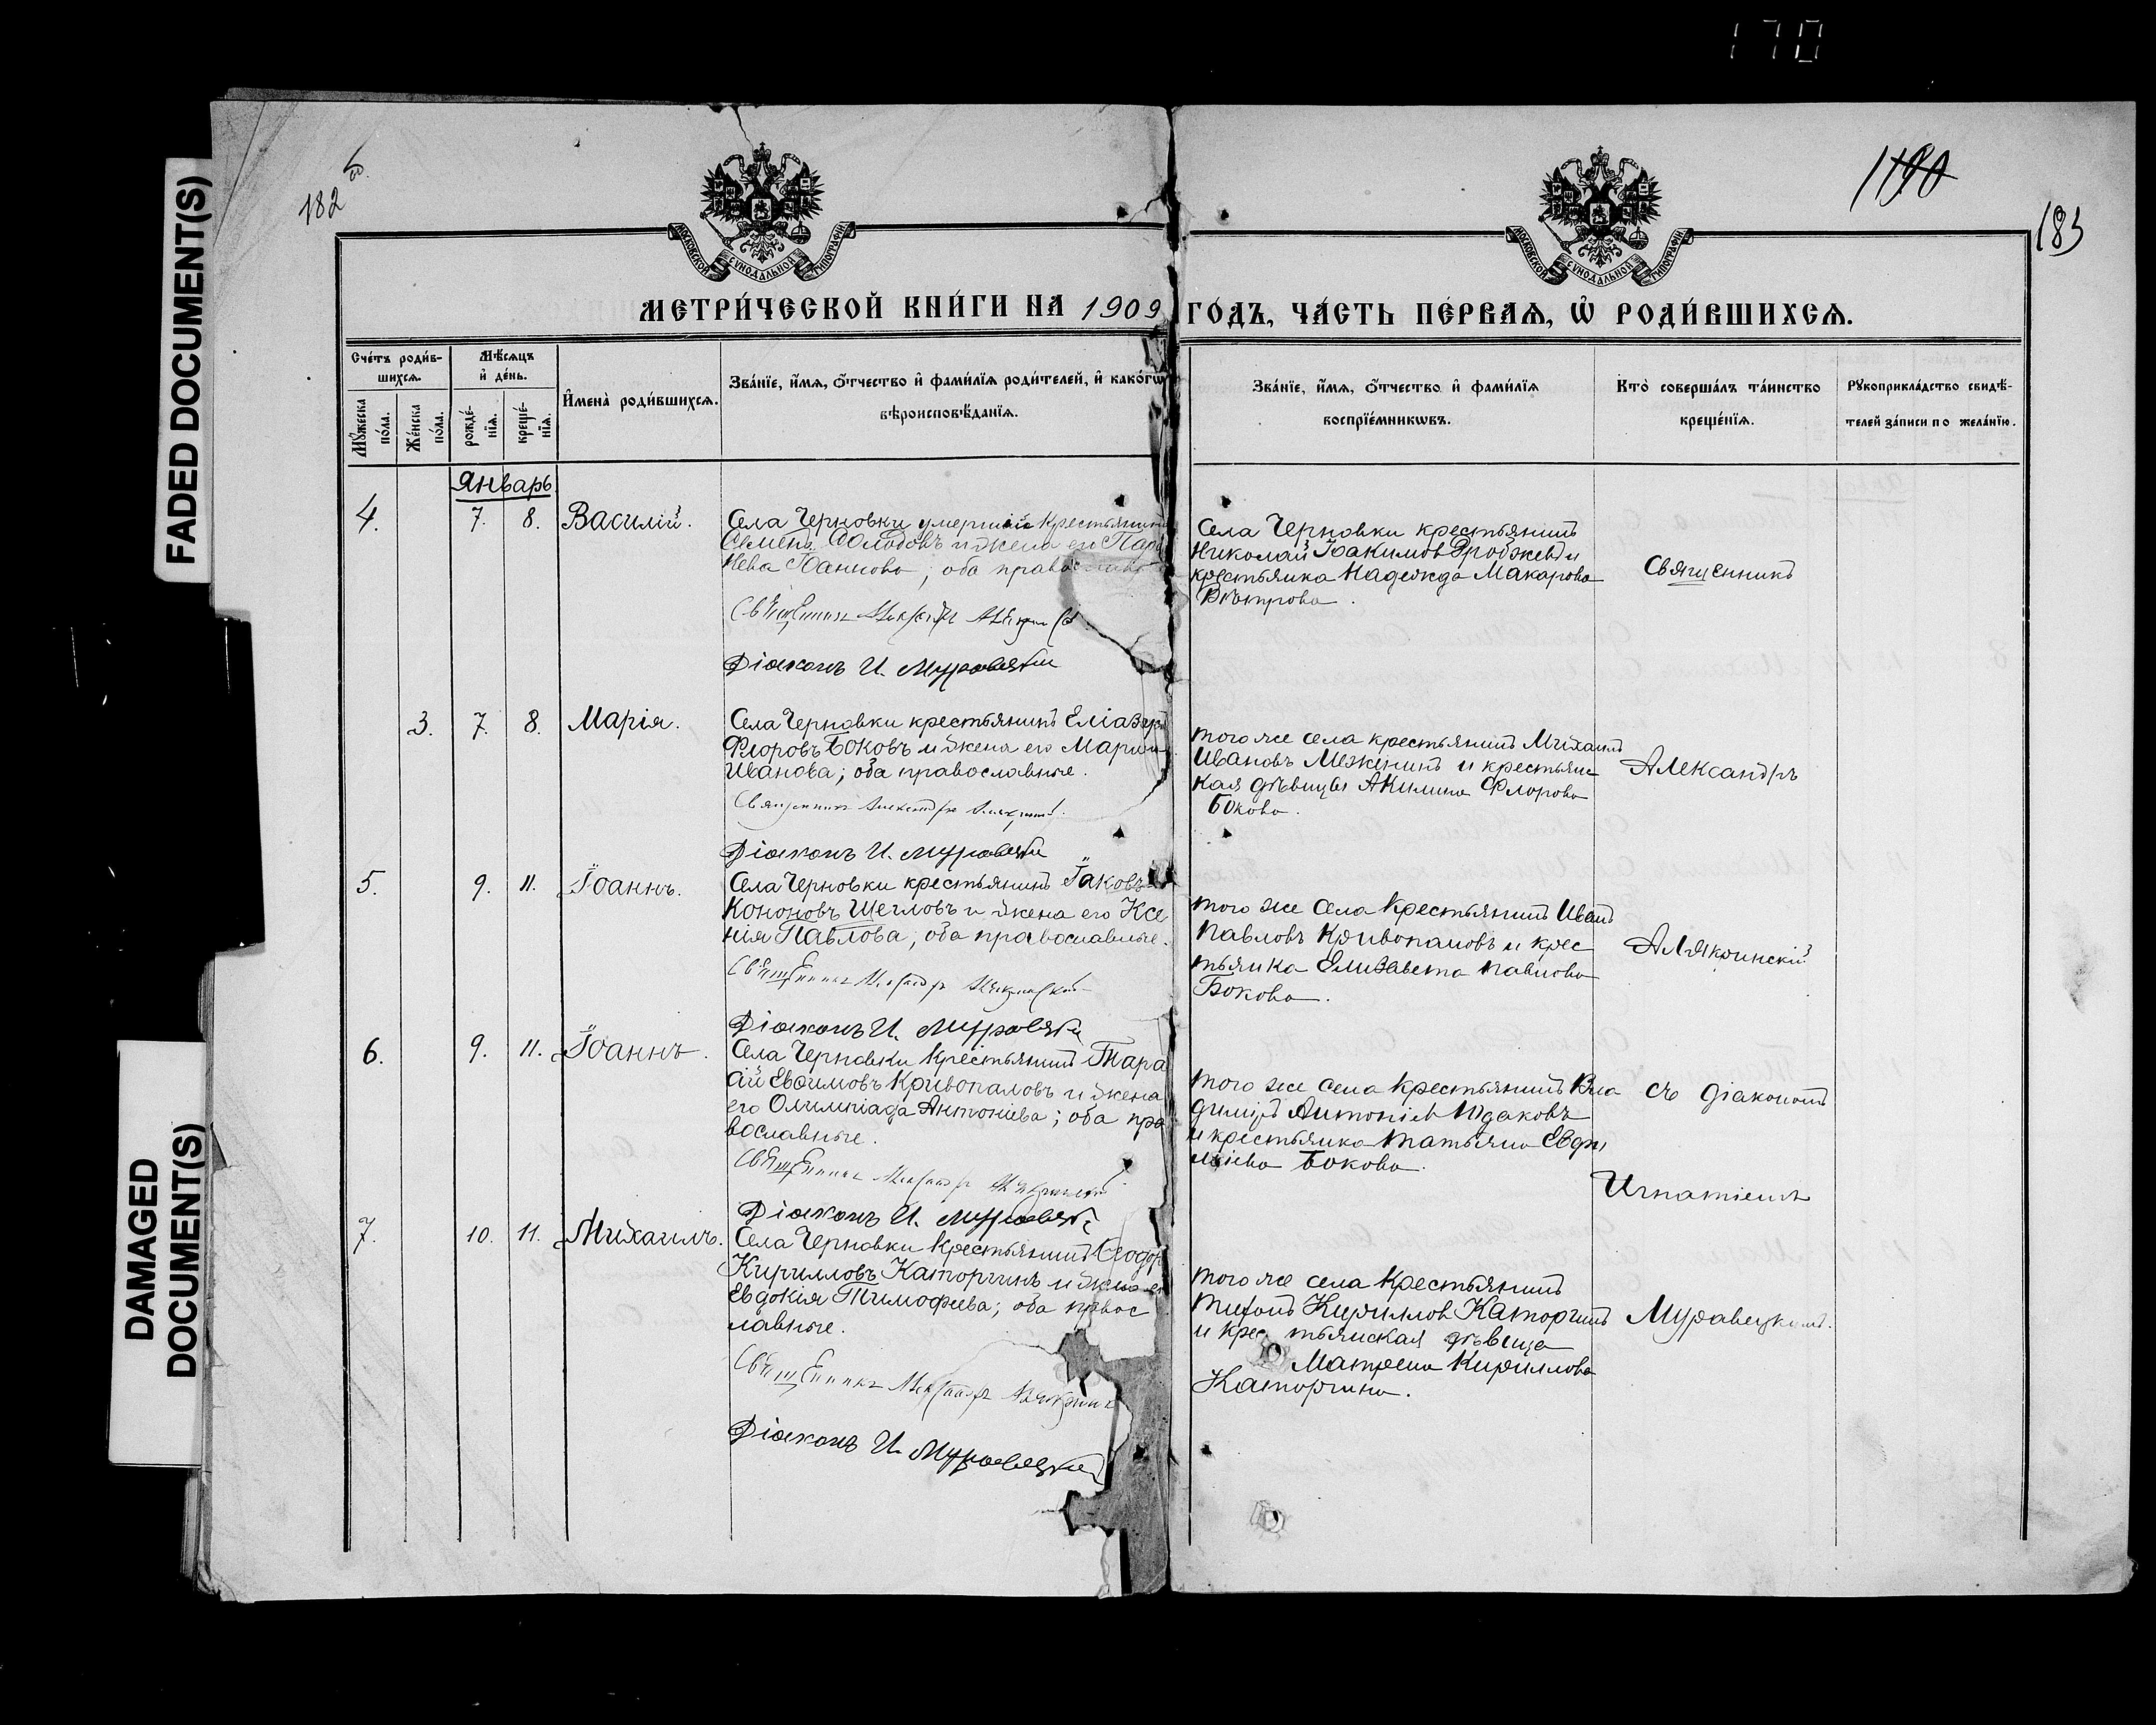 170
FADED DOCUMENT(S)
DAMAGED
DOCUMENT(S)
182 об.
190
183
МОСКОВСКОЙ СѴНОДАЛЬНОЙ ТИПОГРАФІИ
МОСКОВСКОЙ СѴНОДАЛЬНОЙ ТИПОГРАФІИ
МЕТРИ́ЧЕСКОЙ КНИ́ГИ НА 1909 ГО́ДЪ, ЧА́СТЬ ПЕ́РВАЯ, Ѡ҆ РОДИ́ВШИХСЯ.
Сче́тъ роди́в-
шихся.
Мꙋ́жеска
по́ла.
Же́нска
по́ла.
Мѣ́сяцъ
и҆ де́нь.
рожде́-
нїя.
креще́-
нїя.
И҆мена̀ роди́вшихся.
Зва́нїе, и҆́мя, ѻ҆́тчество и҆ фами́лїя роди́телей, и҆ како́гѡ
вѣроисповѣ́данїя.
Зва́нїе, и҆́мя, ѻ҆́тчество и҆ фами́лїя
воспрїе́мникѡвъ.
Кто̀ соверша́лъ та́инство
креще́нїя.
Рꙋкоприкла́дство свидѣ́-
телей за́писи по жела́нїю.
Январь
4. 7. 8. Василій.
Села Черновки умершій Крестьянинъ
Семенъ Солодовъ и жена его Пара
нева Іоаннова; оба православ
Священникъ Александръ
Діаконъ И. Муравецкій
Села Черновки крестьянинъ
Николай Іоакимов и
крестьянка Надежда Макарова
Вѣтрова.
Священникъ
3. 7. 8. Марія.
Села Черновки крестьянинъ Еліазаръ
Флоровъ Боковъ и жена его Марина
Иванова; оба православные.
Священникъ Александръ Алякринскій.
Діаконъ И. Муравецкій
того же села крестьянинъ Михаилъ
Ивановъ Меженинъ и крестьянс
кая дѣвица Акилина Флорова
Бокова.
Александръ
5. 9. 11. Іоаннъ.
Села Черновки крестьянинъ Іаковъ
Кононовъ Щегловъ и жена его Ксе
нія Павлова; оба православные.
Священникъ Александръ Алякринскій
Діаконъ И. Муравецкій
того же села Крестьянинъ Иванъ
Павловъ Кривопаловъ и крес
тьянка Елизавета Павлова
Бокова.
Алякринскій
6. 9. 11. Іоаннъ.
Села Черновки Крестьянинъ Тара
сій Евфимовъ Кривопаловъ и жена
его Олимпіада Антоніева; оба пра
вославные.
Священникъ Александръ Алякринскій
Діаконъ И. Муравецкій
того же села Крестьянинъ Вла
димиръ Антоніев Юдаковъ
и крестьянка Татьяна Евфи
міева Бокова.
съ діакономъ
Игнатіемъ
7. 10. 11. Михаилъ.
Села Черновки Крестьянинъ Ѳеодоръ
Кирилловъ Каторгинъ и жена его
Евдокия Тимофеева; оба правос
лавные.
Священникъ Александръ Алякринскій
Діаконъ И. Муравецкій
того же села Крестьянинъ
Тихонъ Кириллов Каторгинъ
и крестьянская дѣвица
Матрена Кириллова
Каторгина.
Муравецкимъ.